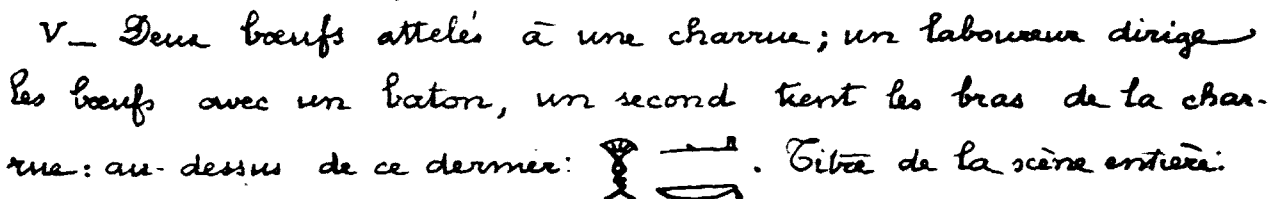 V_ Deux bœufs attelés à une charrue; un laboureur dirige
les bœufs avec un baton, un second tient les bras de la char-
rue: au-dessus de ce dernier: . Titre de la scène entière: